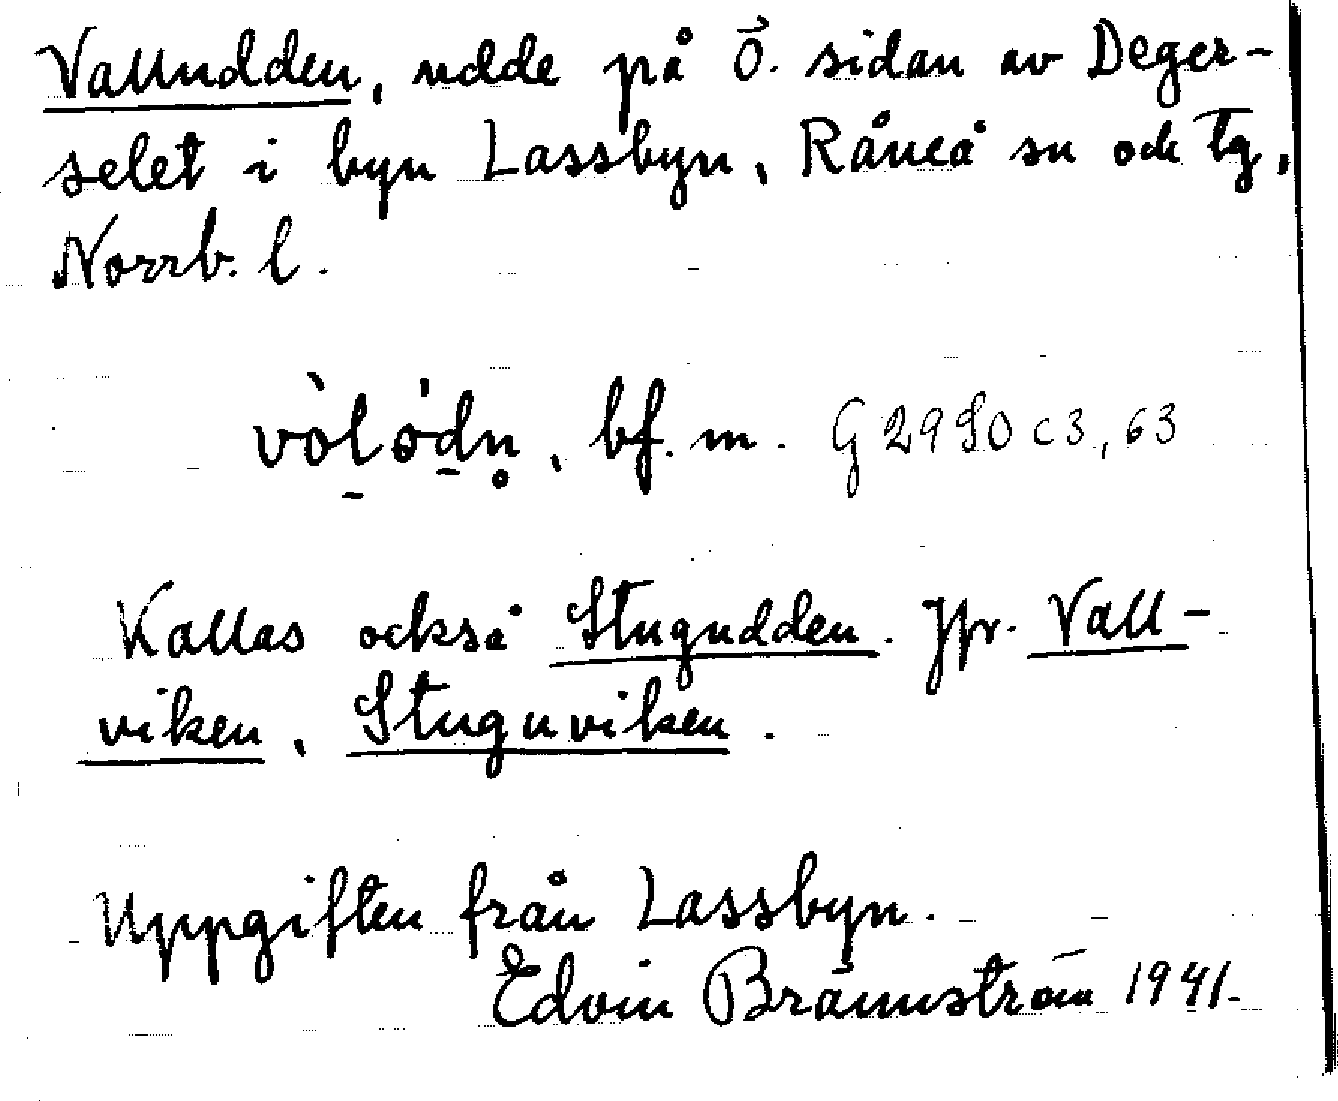 Valludden, udde på Ö. sidan av Deger-
selet i byn Lassbyn, Råneå sn och tg,
Norrb. l.
vòlo̍dn̥, bf. m. G 2980 c3, 63
Kallas också Stugudden. Jfr. Vall-
viken, Stuguviken.
Uppgiften från Lassbyn.
Edvin Brännström 1941.